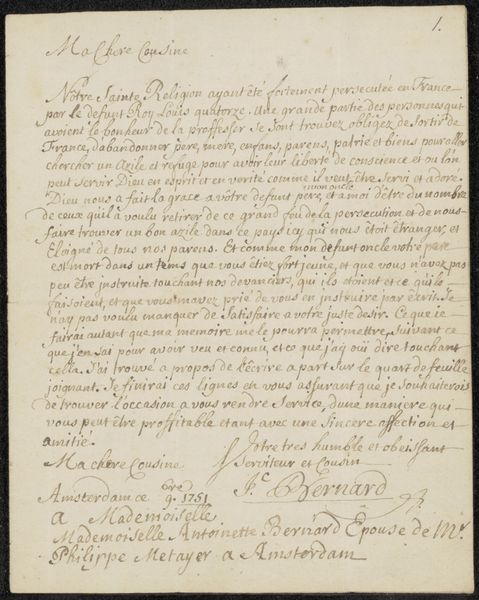 1.
Ma Chere Cousine
Nôtre Sainte Religion ayant été fortement persecutée en France
par le defunt Roy Louis quatorze. Une grande partie des personnes qui
avoient le bonheur de la proffesser se sont trouvez obligez de sortir de
France, d'abandonner pere, mere, enfans, parens, patrie et biens pour aller
chercher un Azile et refuge pour avoir leur liberté de conscience et ou l'on
peut servir Dieu en esprit et en verité comme il veut être servi et adoré.
Dieu nous a fait la grace a vôtre defunt pere, mon oncle et a moi d'être du nombre
de ceux qu'il a voulu retirer de ce grand feu de la persecution et de nous
faire trouver un bon azile dans ce pays icy qui nous étoit étranger, et
Eloigné de tous nos parens. Et comme mon defunt oncle votre pere
est mort dans un tems que vous étiez fort jeune, et que vous n'avez pas
peu être instruite touchant nos devanciers, qui ils étoient et ce qu'ils
faisoient, et que vous m'avez prié de vous en instruire par écrit. Je
n'ay pas voulu manquer de Satisfaire a votre juste desir. Ce que je
fairai autant que ma memoire me le pourra permettre, suivant ce
que j'en sai pour avoir veu et connu, et ce que j'ay oui dire touchant
cella. J'ai trouvé a propos de l'écrire a part sur le quart de feuille
joignant. Je finirai ces lignes en vous assurant que je souhaiterois
de trouver l'occasion a vous rendre service, d'une maniere qui
vous peut être proffitable etant avec une sincere affection et
amitié.
Votre tres humble et obeissant
Ma chere Cousine Serviteur et Cousin
J. Bernard
Amsterdam ce 9. 1751
a Mademoiselle
Mademoiselle Antoinette Bernard Epouse de Mr
Philippe Metayer a Amsterdam